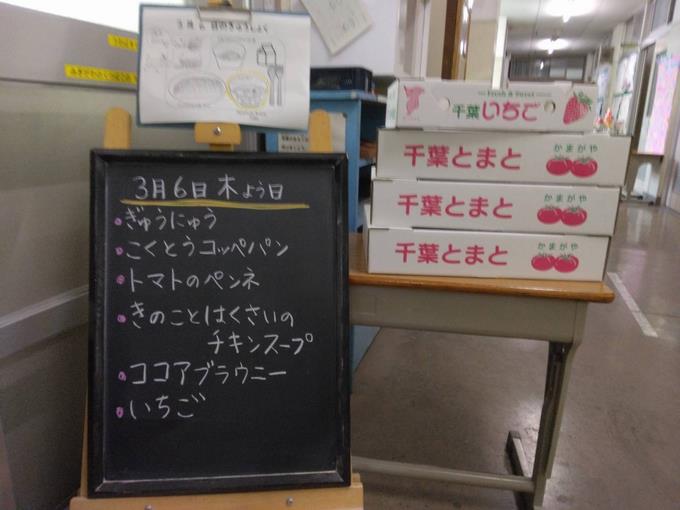 3月6日のきゅうしょく
3月6日 木よう日
ぎゅうにゅう
こくとうコッペパン
トマトのペンネ
きのことはくさいの
チキンスープ
ココアブラウニー
いちご
Fresh & Sweet
千葉いちご
千葉とまと
かまがや
千葉とまと
かまがや
千葉とまと
かまがや